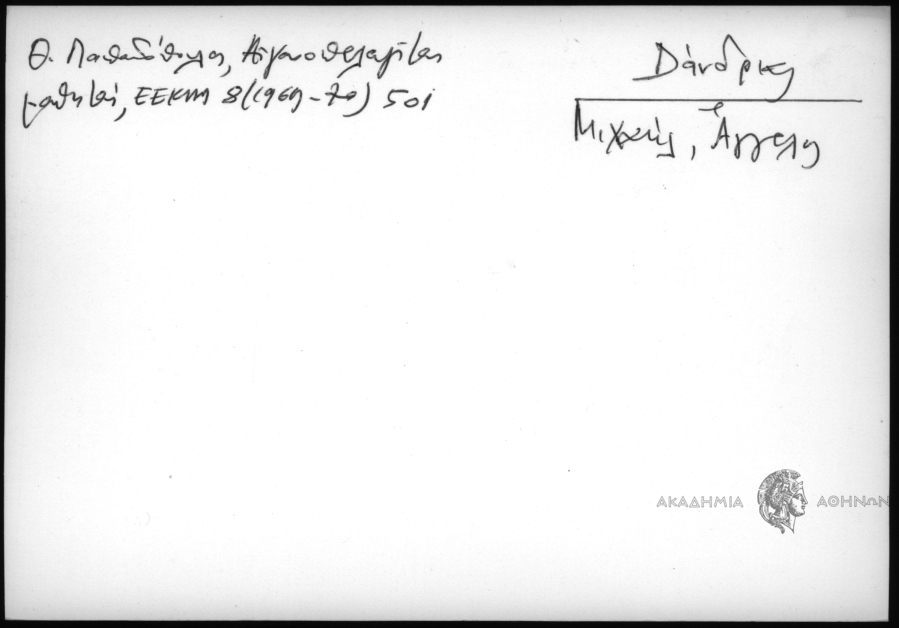 Θ. Παπαδόπουλος, Αἰγαιοπελαγῖται
μαθηταί, ΕΕΚΜ 8 (1969-70) 501
Δάνδρις
Μιχαήλ, Ἄγγελος
ΑΚΑΔΗΜΙΑ ΑΘΗΝΩΝ